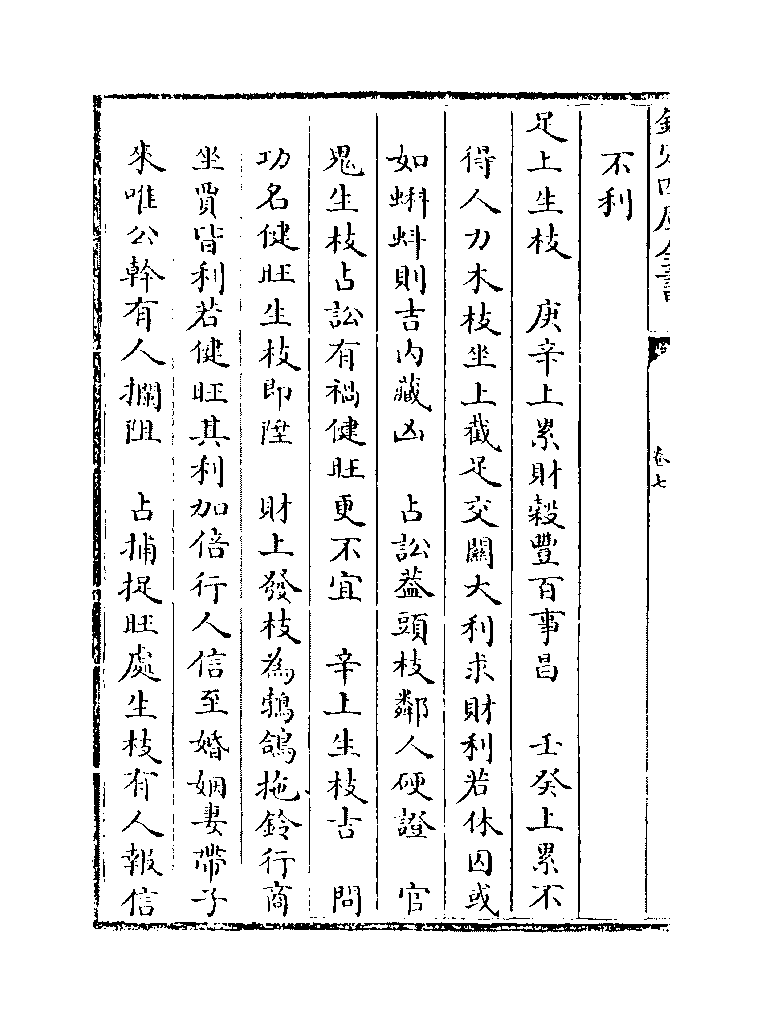 欽定四庫全書
卷七
不利
足上生枝　庚辛上累財穀豐百事昌　壬癸上累不
得人力木枝坐上截足交關大利求財利若休囚或
如蝌蚪則吉内藏凶　占訟蓋頭枝鄰人硬證　官
鬼生枝占訟有禍健旺更不宜　辛上生枝吉　問
功名健旺生枝即陞　財上發枝為鵓鴿拖鈴行商
坐賈皆利若健旺其利加倍行人信至婚姻妻帶子
來唯公幹有人攔阻　占捕捉旺處生枝有人報信